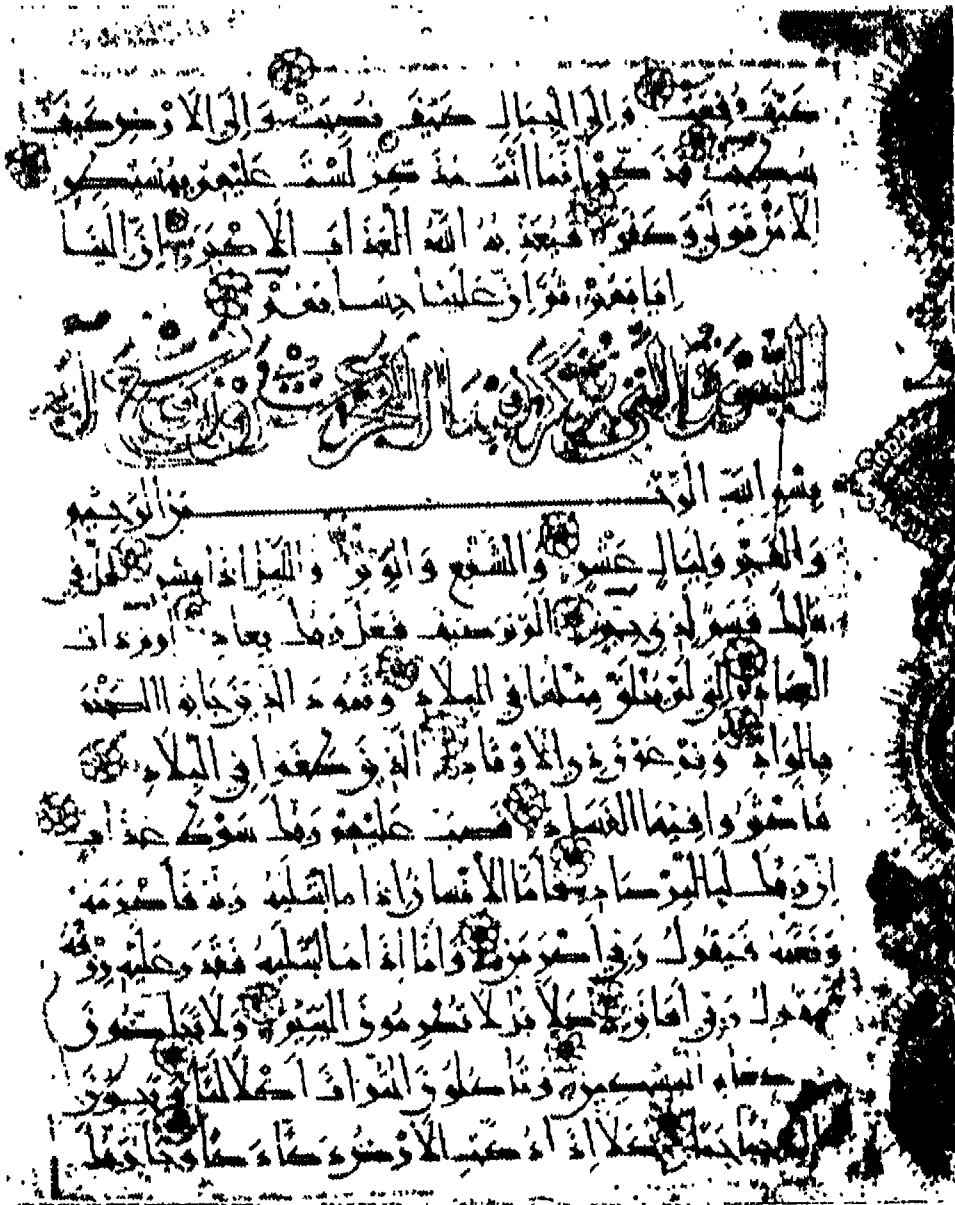 كيف رفعت وإلى الجبال كيف نصبت وإلى الأرض كيف
سطحت فذكر إنما أنت مذكر لست عليهم بمسيطر
إلا من تولى وكفر فيعذبه الله العذاب الأكبر إن إلينا
إيابهم ثم إن علينا حسابهم
السورة التي يذكر فيها الفجر
بسم الله الرحمن الرحيم
والفجر وليال عشر والشفع والوتر والليل إذا يسر هل في
ذلك قسم لذي حجر ألم تر كيف فعل ربك بعاد إرم ذات
العماد التي لم يخلق مثلها في البلاد وثمود الذين جابوا الصخر
بالواد وفرعون ذي الأوتاد الذين طغوا في البلاد
فأكثروا فيها الفساد فصب عليهم ربك سوط عذاب
إن ربك لبالمرصاد فأما الإنسان إذا ما ابتليه ربه فأكرمه
ونعمه فيقول ربي أكرمن وأما إذا ما ابتليه فقدر عليه رزقه
فيقول ربي أهانن كلا بل لا تكرمون اليتيم ولا تحاضون
على طعام المسكين وتأكلون التراث أكلا لما وتحبون
المال حبا جما كلا إذا دكت الأرض دكا دكا وجاء ربك